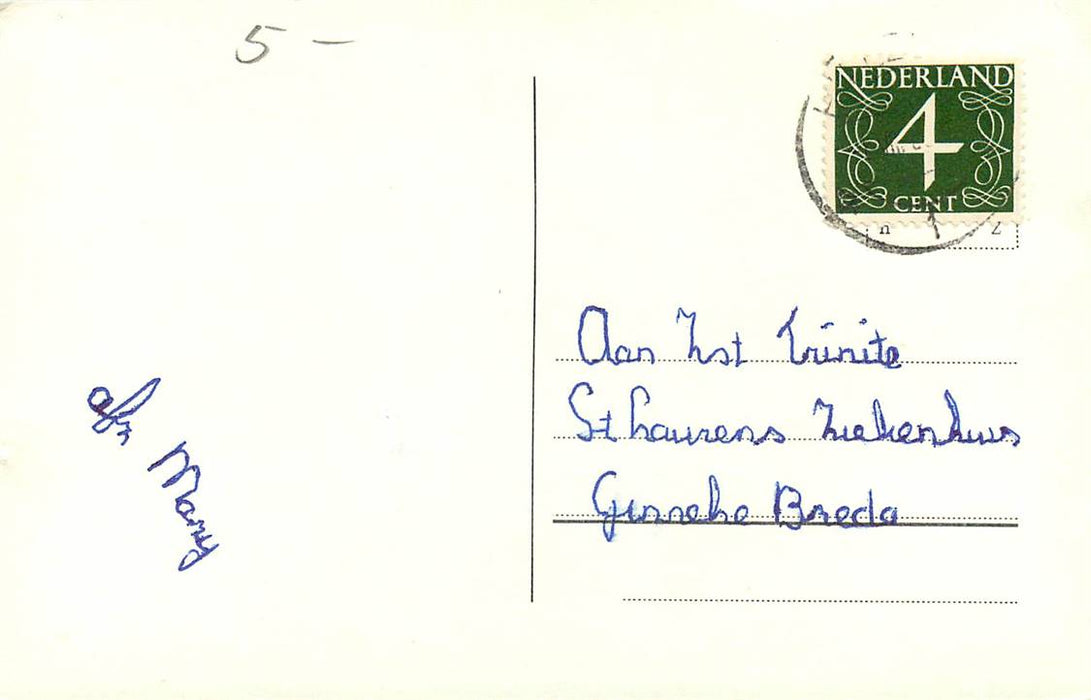 5 –
NEDERLAND
4
CENT
Aan Zst Trinite
St Laurens Ziekenhuis
Ginneke Breda
afz Marry